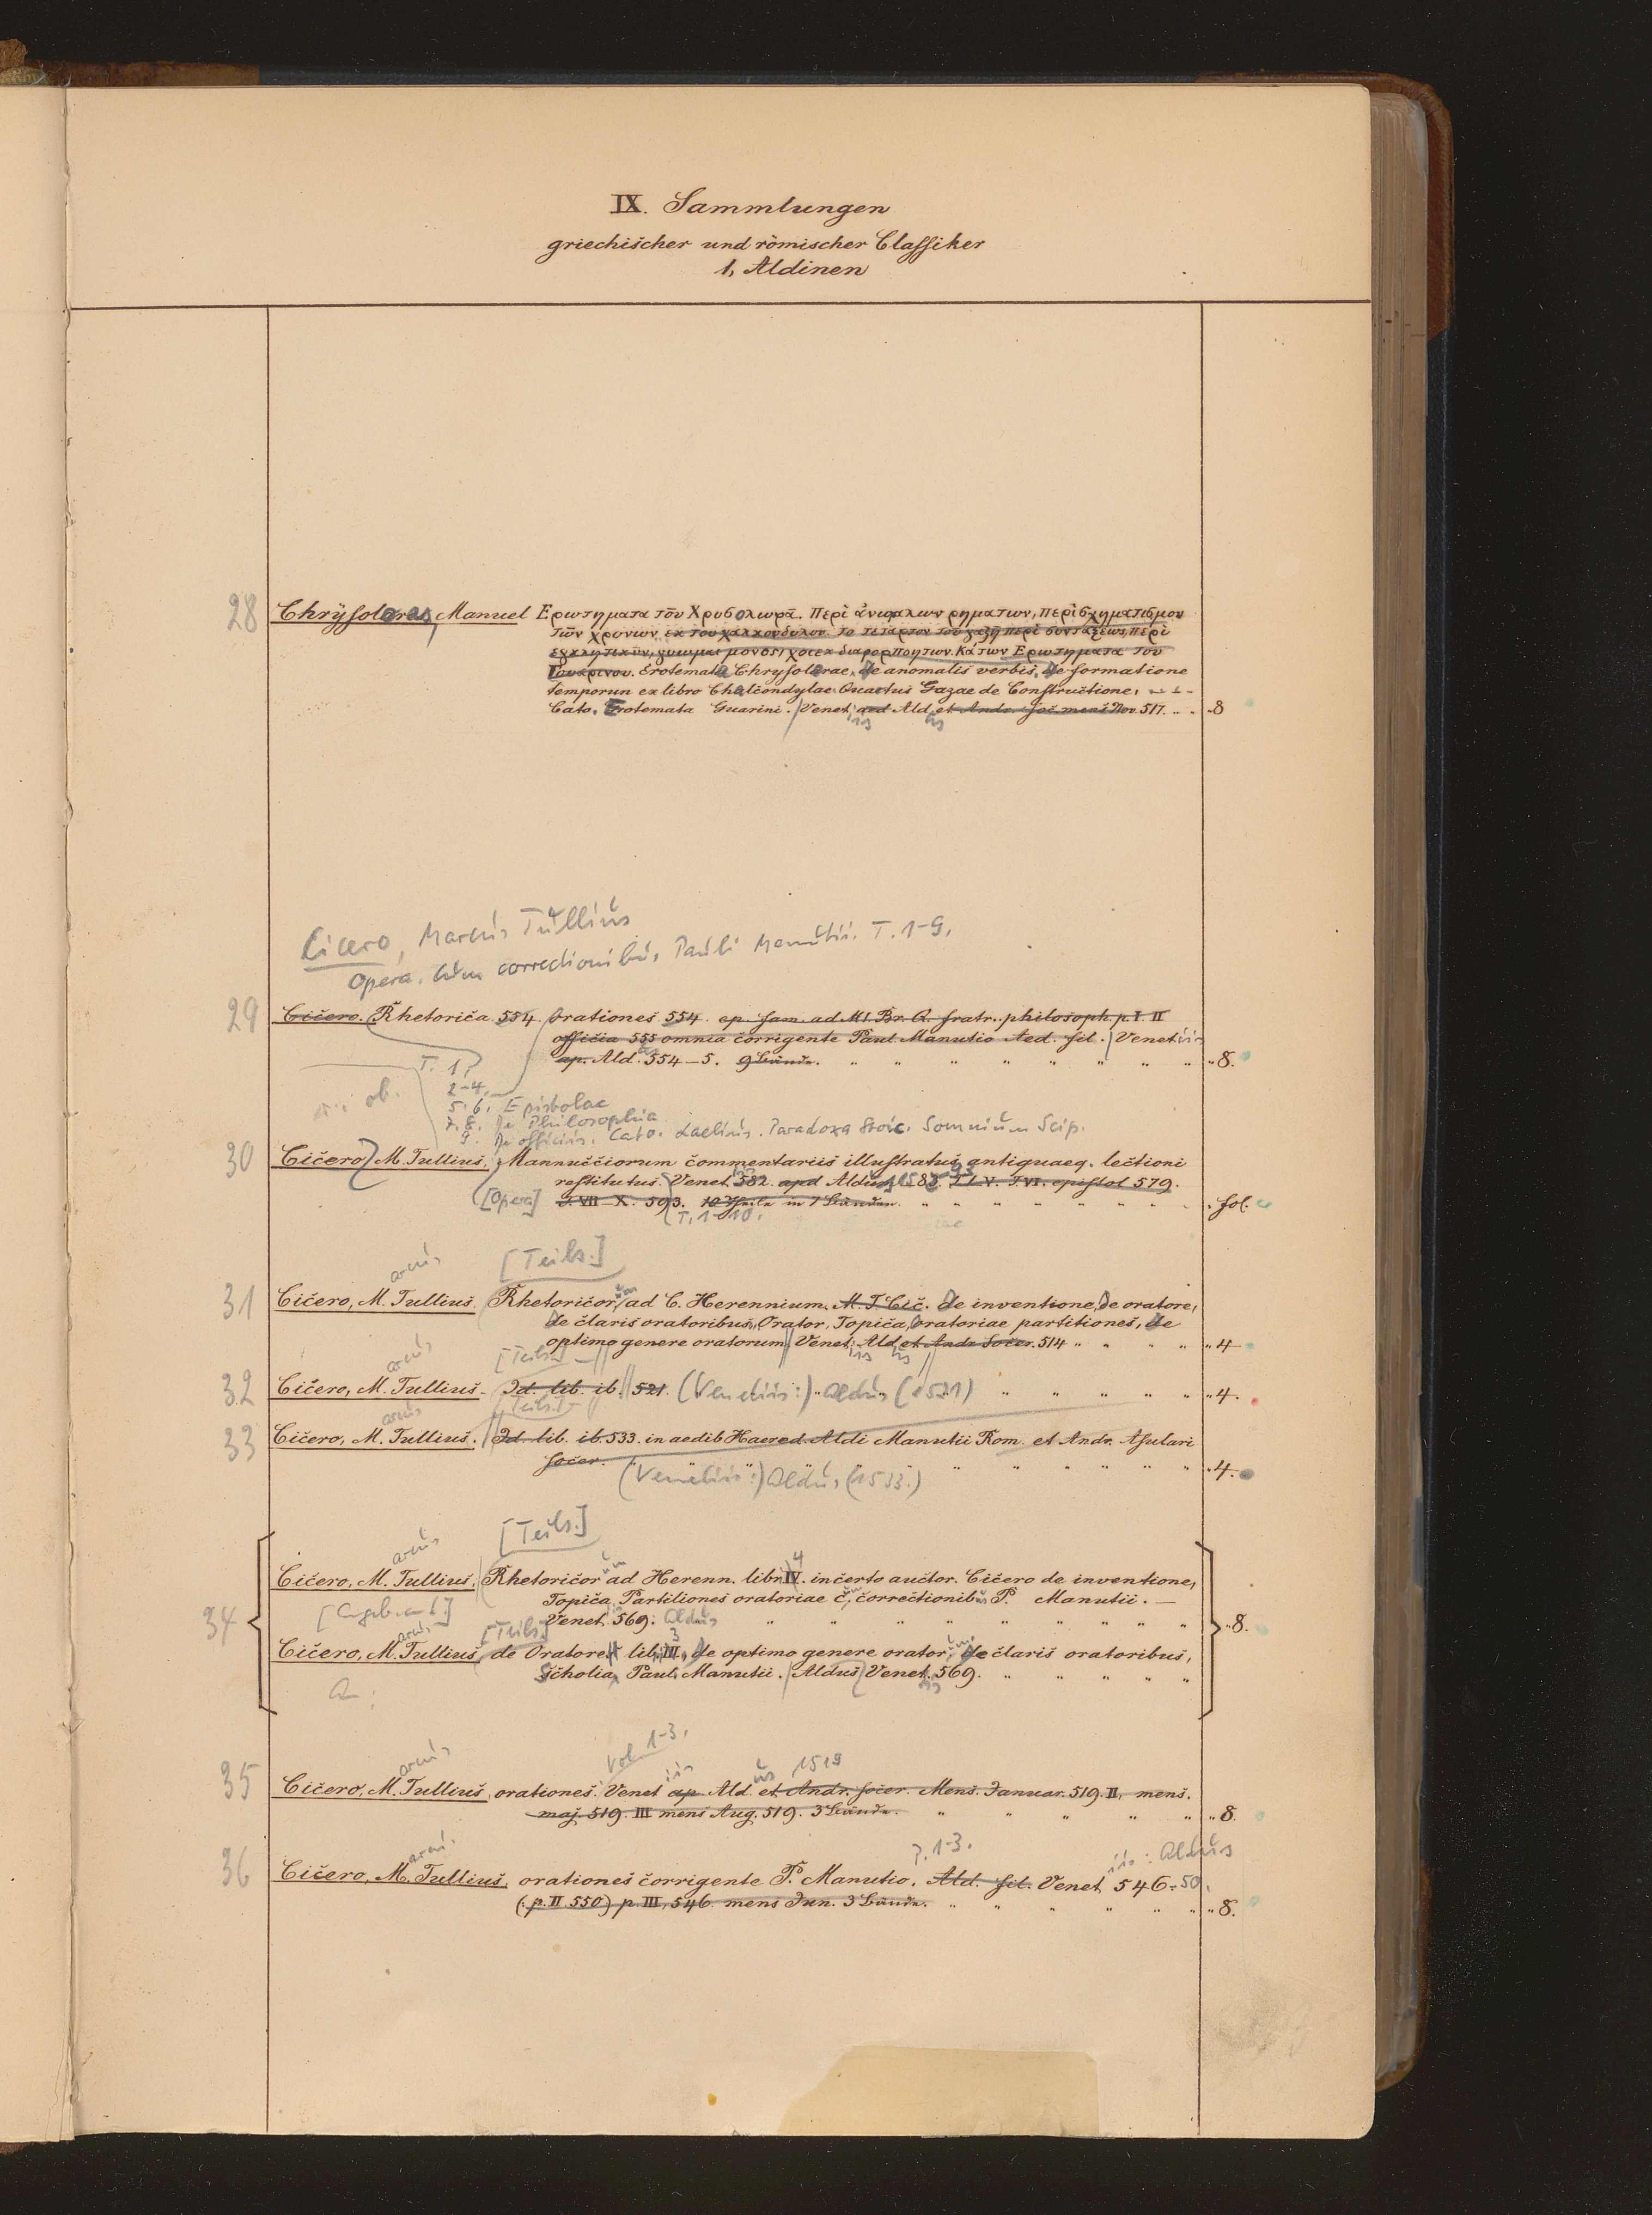 IX. Sammlungen
griechischer und römischer Classiker
1, Aldinen
28 Chrÿsoloras, Manuel Ερωτηματα τοῦ Χρυσολωρᾶ. Περὶ ἀνωμαλων ρηματων, περὶ σχηματισμου
τῶν χρονων εκ του χαλκονδυλου. το τεταρτον του γαζῆ περὶ συνταξεως, περὶ
εγκλητικῶν, γνωμαι μονοστιχοι εκ διαφορ ποητων. Κάτων Ερωτηματα τοῦ
Γουαρινου. Erotemata Chrysolorae, de anomalis verbis, de formatione
temporun ex libro Chalcondylae Quartus Gazae de Constructione,
Cato. Erotemata Guarini. Venet. apd Ald. et Andr. soc. mens Nov. 517. 8
Cicero, Marcus Tullius
Opera. Cum correctionibus Pauli Manutii. T. 1-9.
29 Cicero. Rhetorica 554. Orationes 554. ep. fam. ad M! Br. Q. fratr. philosoph. p. I. II
officia 555 omnia corrigente Paul. Manutio Aed. fil. Venetiis
ap. Ald. 554–5. 9 Bände. " 8.
T. 1.
2-4.
5.6. Epistolae
7.8. De Philosophia
9. De officiis. Cato. Laelius. Paradoxa Stoic. Somnium Scip.
30 Cicero, M. Tullius, Mannucciorum commentariis illustratus antiquaeq. lectioni
restitutus. Venet. 582. apd Aldus 1583. T. I. V. T. VI. epistol 579.
[Opera] T. VII–X. 593. 10 Theile in 7 Bänden. fol.
T. 1-10.
[Teils.]
arcus
31 Cicero, M. Tullius. Rhetoricorum ad C. Herennium. M. T. Cic. de inventione, de oratore,
de claris oratoribus, Orator, Topica, oratoriae partitiones, de
optimo genere oratorum, Venet. Ald. et Andr. Socer. 514 " 4
arcus [Teils.]
32 Cicero, M. Tullius. Id. lib. ib. 521. (Venetiis:) Aldus (1521) " 4.
arcus [Teils.]
33 Cicero, M. Tullius. Id. lib. ib. 533. in aedib Haered. Aldi Manutii Rom. et Andr. Asulari
socer. " 4.
(Venetiis:) Aldus (1533.)
[Teils.]
arcus
34 Cicero, M. Tullius. Rhetoricorum ad Herenn. libri IV. 4 incerto auctor. Cicero de inventione,
Topica, Partitiones oratoriae c, correctionibus P. Manutii. —
[Angeb. an 1.] Venet. 569. Aldus " 8.
arcus [Teils.] 3
Cicero, M. Tullius, de Oratore libri III, de optimo genere orator. de claris oratoribus,
Scholia Paul. Manutii. Aldus Venet. 569.
Vol. 1-3.
arcus iis us 1519
35 Cicero, M. Tullius, orationes. Venet ap. Ald. et Andr. socer. Mens. Januar. 519. II, mens.
maj. 519. III mens Aug. 519. 3 Bände. " 8.
arcus P. 1-3. iis: Aldus
36 Cicero, M. Tullius, orationes corrigente P. Manutio. Ald. fil. Venet 546-50.
(p. II. 550) p. III, 546 mens Jun. 3 Bände. " 8.